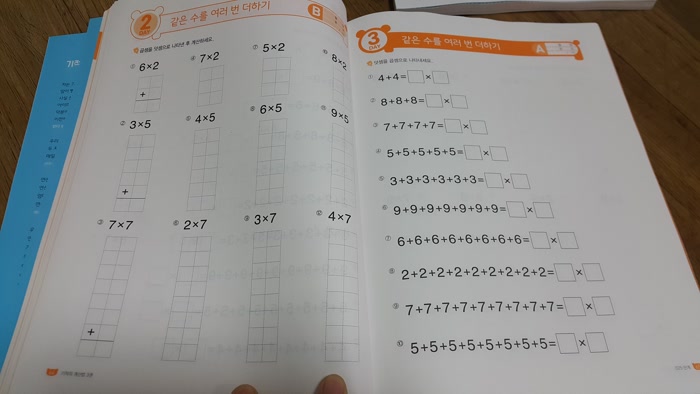 2 DAY 같은 수를 여러 번 더하기 B
곱셈을 덧셈으로 나타낸 후 계산하세요.
① 6×2 ④ 7×2 ⑦ 5×2 ⑩ 8×2
+
② 3×5 ⑤ 4×5 ⑧ 6×5 ⑪ 9×5
+
③ 7×7 ⑥ 2×7 ⑨ 3×7 ⑫ 4×7
+
3 DAY 같은 수를 여러 번 더하기 A
덧셈을 곱셈으로 나타내세요.
① 4+4=□×□
② 8+8+8=□×□
③ 7+7+7+7=□×□
④ 5+5+5+5+5=□×□
⑤ 3+3+3+3+3+3=□×□
⑥ 9+9+9+9+9+9+9=□×□
⑦ 6+6+6+6+6+6+6+6=□×□
⑧ 2+2+2+2+2+2+2+2+2=□×□
⑨ 7+7+7+7+7+7+7+7+7=□×□
⑩ 5+5+5+5+5+5+5+5=□×□